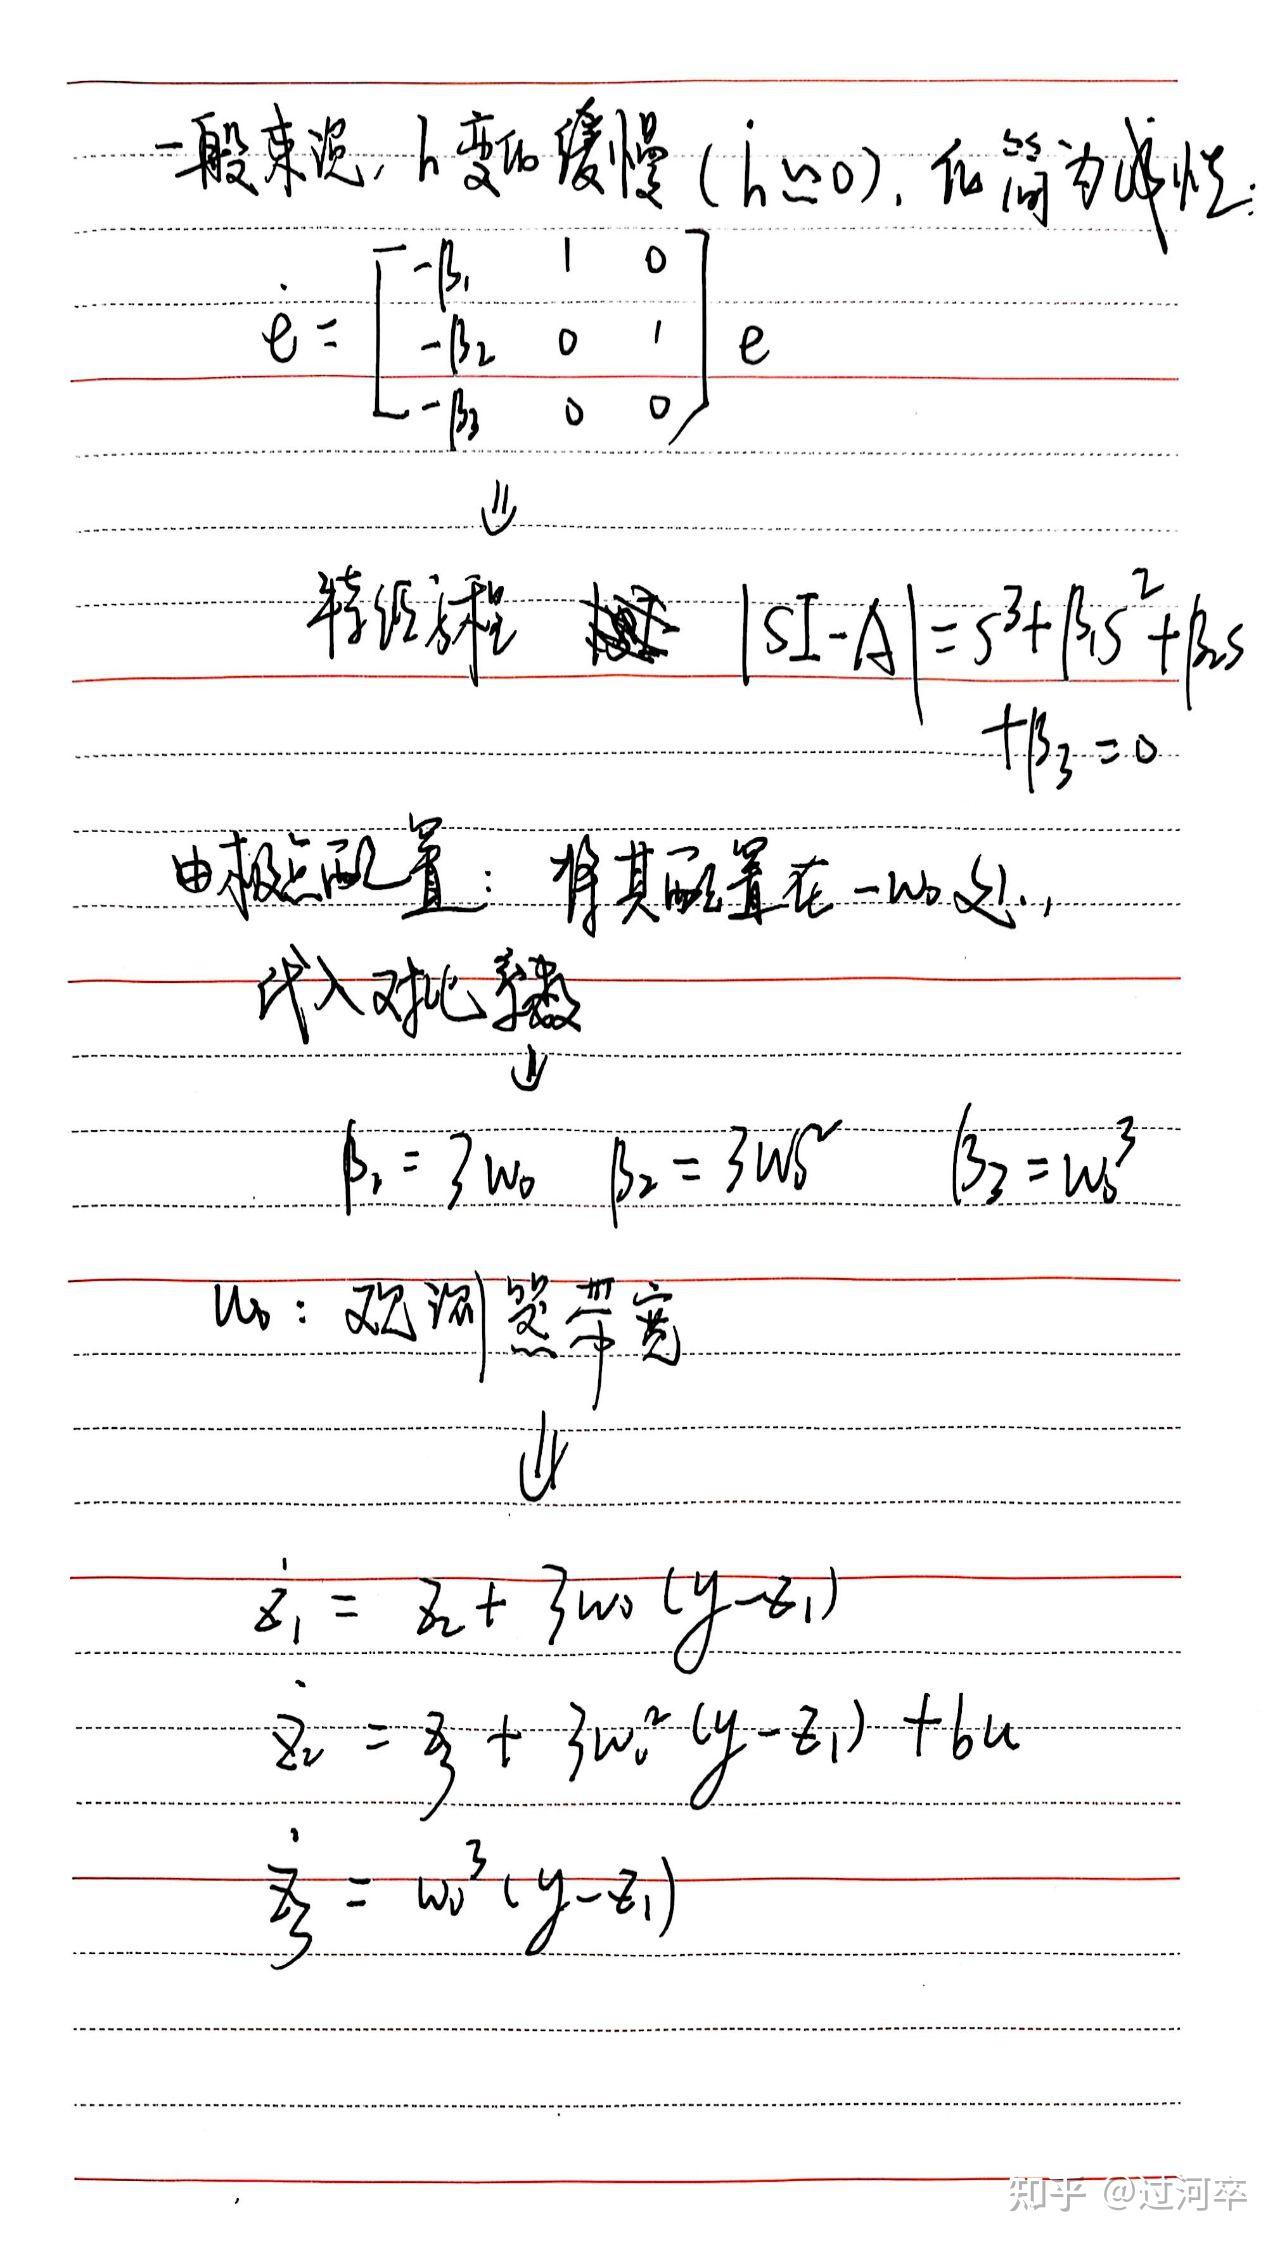 一般来说，h变化缓慢（ḣ≈0），化简为线性：
ė = [ -β₁ 1 0
-β₂ 0 1
-β₃ 0 0 ] e
⇓
特征方程 |SI-A| = s³+β₁s²+β₂s
+β₃=0
由极点配置：将其配置在-w₀处，
代入对比系数
⇓
β₁=3w₀ β₂=3w₀² β₃=w₀³
w₀：观测器带宽
⇓
ż₁ = z₂+3w₀(y-z₁)
ż₂ = z₃+3w₀²(y-z₁)+bu
ż₃ = w₀³(y-z₁)
知乎 @过河卒